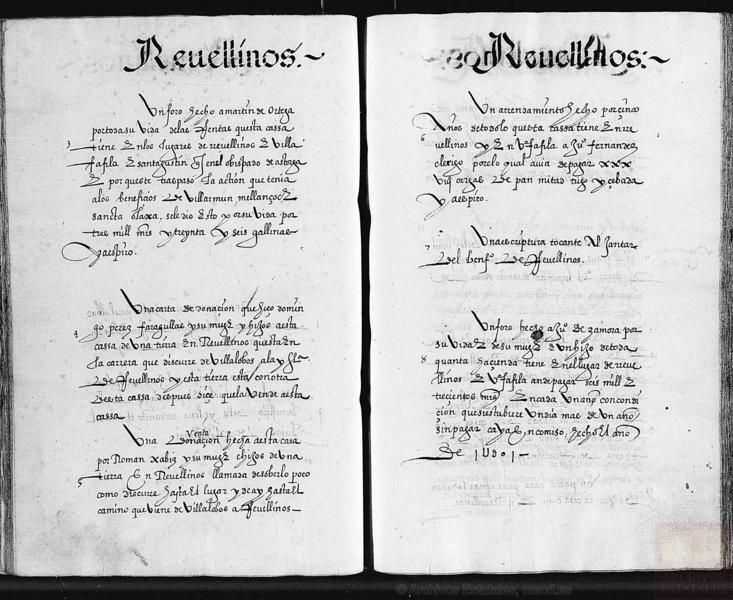 Revellinos.~
Un foro hecho a martin de Ortega
por toda su vida de las Rentas questa cassa
3 tiene en los lugares de rrevellinos e villa
fafila e santagustin ques en el obispado de astorga
e por queste traspaso la action que tenia
a los beneficios de villarmun, mellanços e
sancta olaxa, se le dio esto por su vida por
tres mill mrs y treynta y seis gallinas
y aespiro.
4 Una carta de donaçion que hiço domin
go perez faragullas y su muger y hijos a esta
cassa de una tierra en Revellinos questa en
la carrera que discurre de villalobos a la ygla
de Revellinos y esta tierra esta con otra
desta cassa despues diçe que la vende a esta
cassa
Una donaçion hecha a esta casa
Venta
por Roman xabiz y su muger e higos de una
5 tierra en Revellinos llamada
como discurre hasta el lugar y de ay hasta el
camino que viene de villalobos a Revellinos
Revellinos:~
Un arrendamiento hecho por çinco
6 Años de todo lo questa cassa tiene en rre
vellinos y en Vafafila a Ju° fernandez
clerigo por lo qual avia de pagar xxx
viij cargas de pan mitad trigo y çebada
y aespiro.
7 Una escriptura tocante Al Jantar
del benf° de Revellinos.
Un foro hecho a Ju° de zamora por
su vida e de su muger e un hijo de toda
8 quanta haçienda tiene en el lugar de reve
llinos e Vafafila an de pagar seis mill e
treçientos mrs en cada un año con condi
çion que si estubiere un dia mas de un año
sin pagar caya en comiso, hecho el año
De